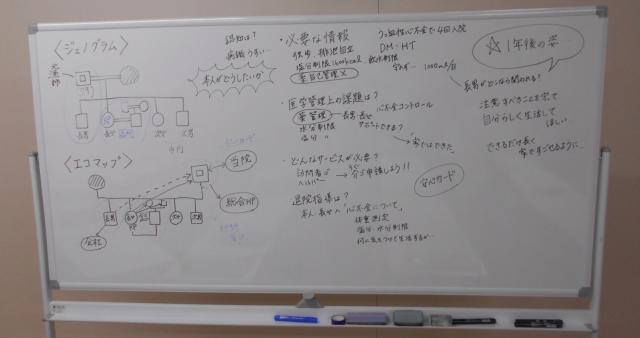 〈ジェノグラム〉
認知は?
病識うすい…
本人がどうしたいか
長男
長女
次女
次男
市内
〈エコマップ〉
当院
総合HP
会社
長男
長女
次女
・必要な情報
うっ血性心不全で4回入院
独歩 排泄自立
DM・HT
塩分制限 1600kcal 飲水制限
1000ml/日
薬自己管理×
・医学管理上の課題は?
心不全コントロール
薬管理 長男・長女
水分制限 サポートできる?
塩分 〃
→「家ではできた」
・どんなサービスが必要?
訪問看ゴ
ヘルパー
→介ゴ申請しよう!!
退院指導は?
本人・長女へ「心不全について」
体重測定
塩分・水分制限
何に気をつけて生活するか…
☆1年後の姿…
長男がどのくらい関われる?
注意すべきことを守って
自分らしく生活して
ほしい
できるだけ長く
家ですごせるように…
安心カード